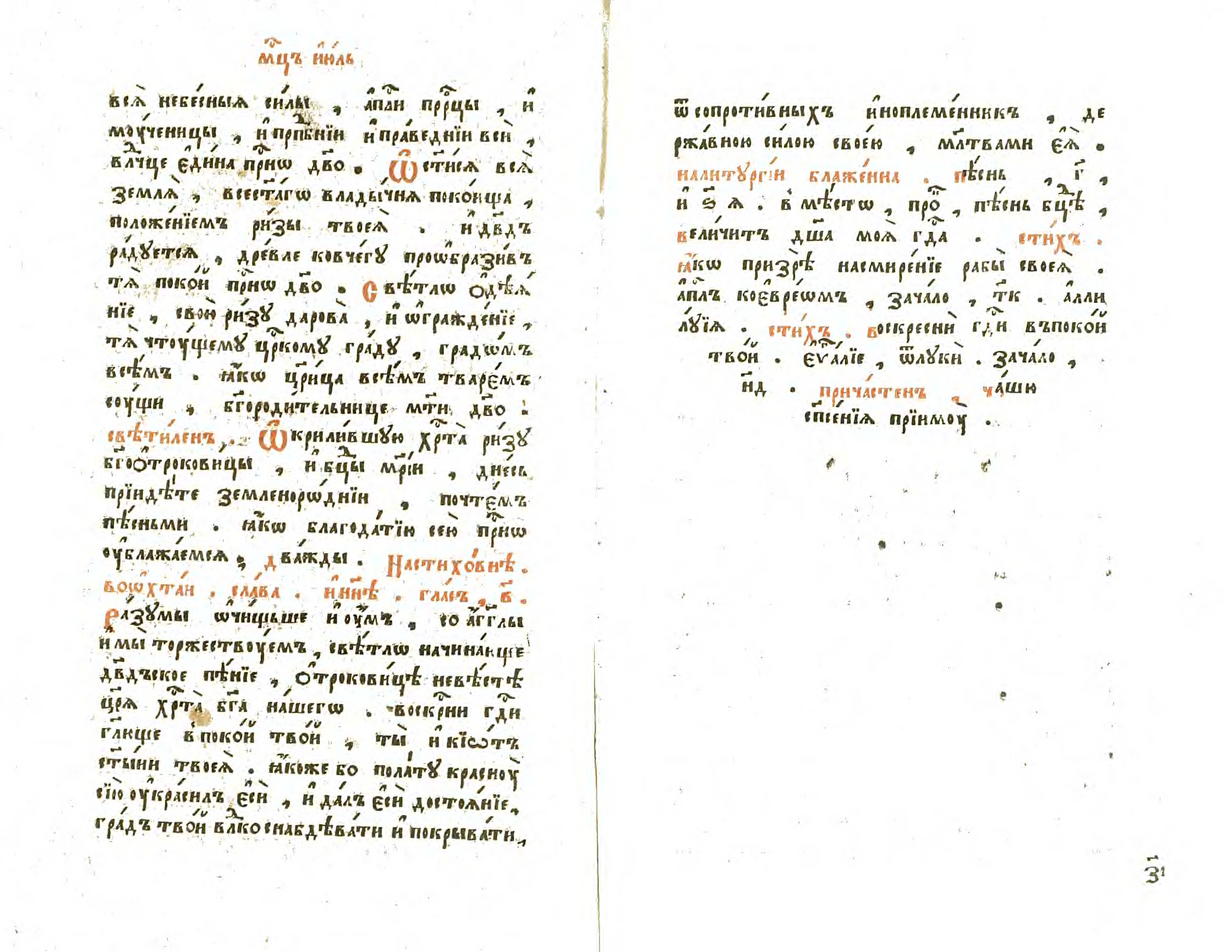 мⷭ҇цъ і҆ю́ль
всѧ̀ небе́сныѧ си́лы , а҆пⷭ҇ли прⷪ҇рцы , и҆
моу́ченицы , и҆ прпⷣбнїи и҆ пра́веднїи вси̑ ,
влⷣчце є҆ди́на при́сⷩѡ дв҃о . Ѿ стїсѧ всѧ̀
землѧ̀ , всест҃а́гѡ влады́чнѧ поко́ища ,
положе́нїемъ ри́зы твоеѧ̀ . и҆ дв҃дъ
ра́дуетсѧ , дре́вле ковче́гꙋ проѡбрази́въ
тѧ̀ поко́й при́сⷩѡ дв҃о . Свѣ́тлѡ ѻ҆дѣѧ́
нїе , свою̀ ри́зꙋ дарова̀ , и҆ ѡ҆гражде́нїе ,
тѧ̀ чтоу́щемꙋ црⷭ҇комꙋ гра́дꙋ , градѡ́мъ
всѣ́мъ . ꙗ҆́кѡ цр҃и́ца всѣ́мъ тваре́мъ
соу́щи , бг҃ороди́тельнице мт҃и дв҃о :
свѣти́ленъ . Ѿкрили́вшую хрⷭ҇та̀ ри́зꙋ
бг҃оѻтрокови́цы , и҆ бцⷣы мр҃і́и , дне́сь
прїидѣ́те земленоро́днїи , почте́мъ
пѣ́сньми . ꙗ҆́кѡ благода́тїю сею̀ при́сⷩѡ
оу҆блажа́емсѧ , два́жды . На стихо́внѣ .
во ѻ҆хта́и . сла́ва . и҆ ны́нѣ . гла́съ , в҃ .
Ра́зꙋмы ѡ҆чи́щьше и҆ оу́мъ , со а҆́гг҃лы
и҆ мы̀ торжество́уемъ , свѣ́тлѡ начина́юще
дв҃дьское пѣ́нїе , ѻ҆трокови́цѣ невѣ́стѣ
цр҃ѧ̀ хрⷭ҇та̀ бг҃а на́шегѡ . воскрⷭ҇ни гдⷭ҇и
гл҃юще в поко́й тво́й , ты̀ и҆ кївѡ́тъ
ст҃ы́ни твоеѧ̀ . ꙗ҆́коже бо пола́тꙋ красноу̀
сїю̀ оу҆кра́силъ є҆сѝ , и҆ да́лъ є҆сѝ достоѧ́нїе ,
гра́дъ тво́й влⷣко снабдѣва́ти и҆ покрыва́ти ,
ѿ сопроти́вныхъ и҆ноплеме́нникъ , де
ржа́вною си́лою своею̀ , млⷭ҇твами є҆ѧ̀ .
на литꙋргі́и блаже́нна . пѣ́снь , г҃ ,
и҆ ѕ҃ ѧ . в мѣ́стѡ , про́ , пѣ́снь бцⷣѣ ,
вели́читъ дш҃а моѧ̀ гдⷭ҇а . сти́хъ .
ꙗ҆́кѡ призрѣ̀ на смире́нїе рабы̀ своеѧ̀ .
а҆пⷭ҇лъ ко є҆вре́ѡмъ , зача́ло , т҃к . а҆лли
лꙋ́їѧ . сти́хъ . воскреснѝ гдⷭ҇и въ поко́й
тво́й . є҆ѵⷢ҇лїе , ѿ лꙋкѝ . зача́ло ,
н҃д . прича́стенъ , ча́шю
сп҃се́нїѧ прїимоу̀ .
з҃і